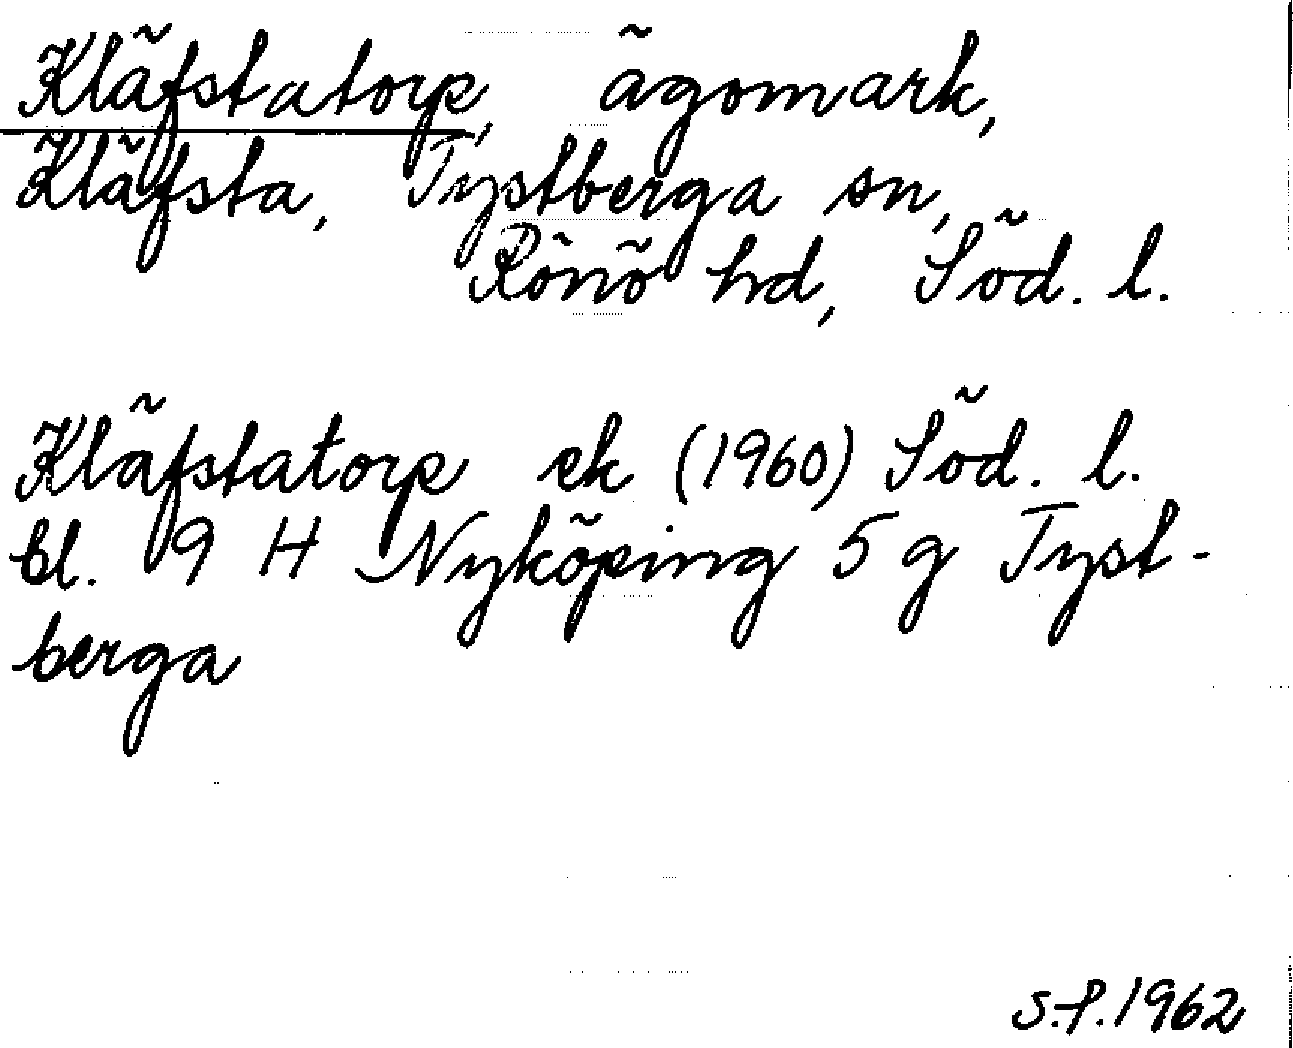 Kläfstatorp, ägomark,
Kläfsta, Tystberga sn,
Rönö hd, Söd. l.
Kläfstatorp ek (1960) Söd. l.
bl. 9 H Nyköping 5 g Tyst-
berga
S.f. 1962